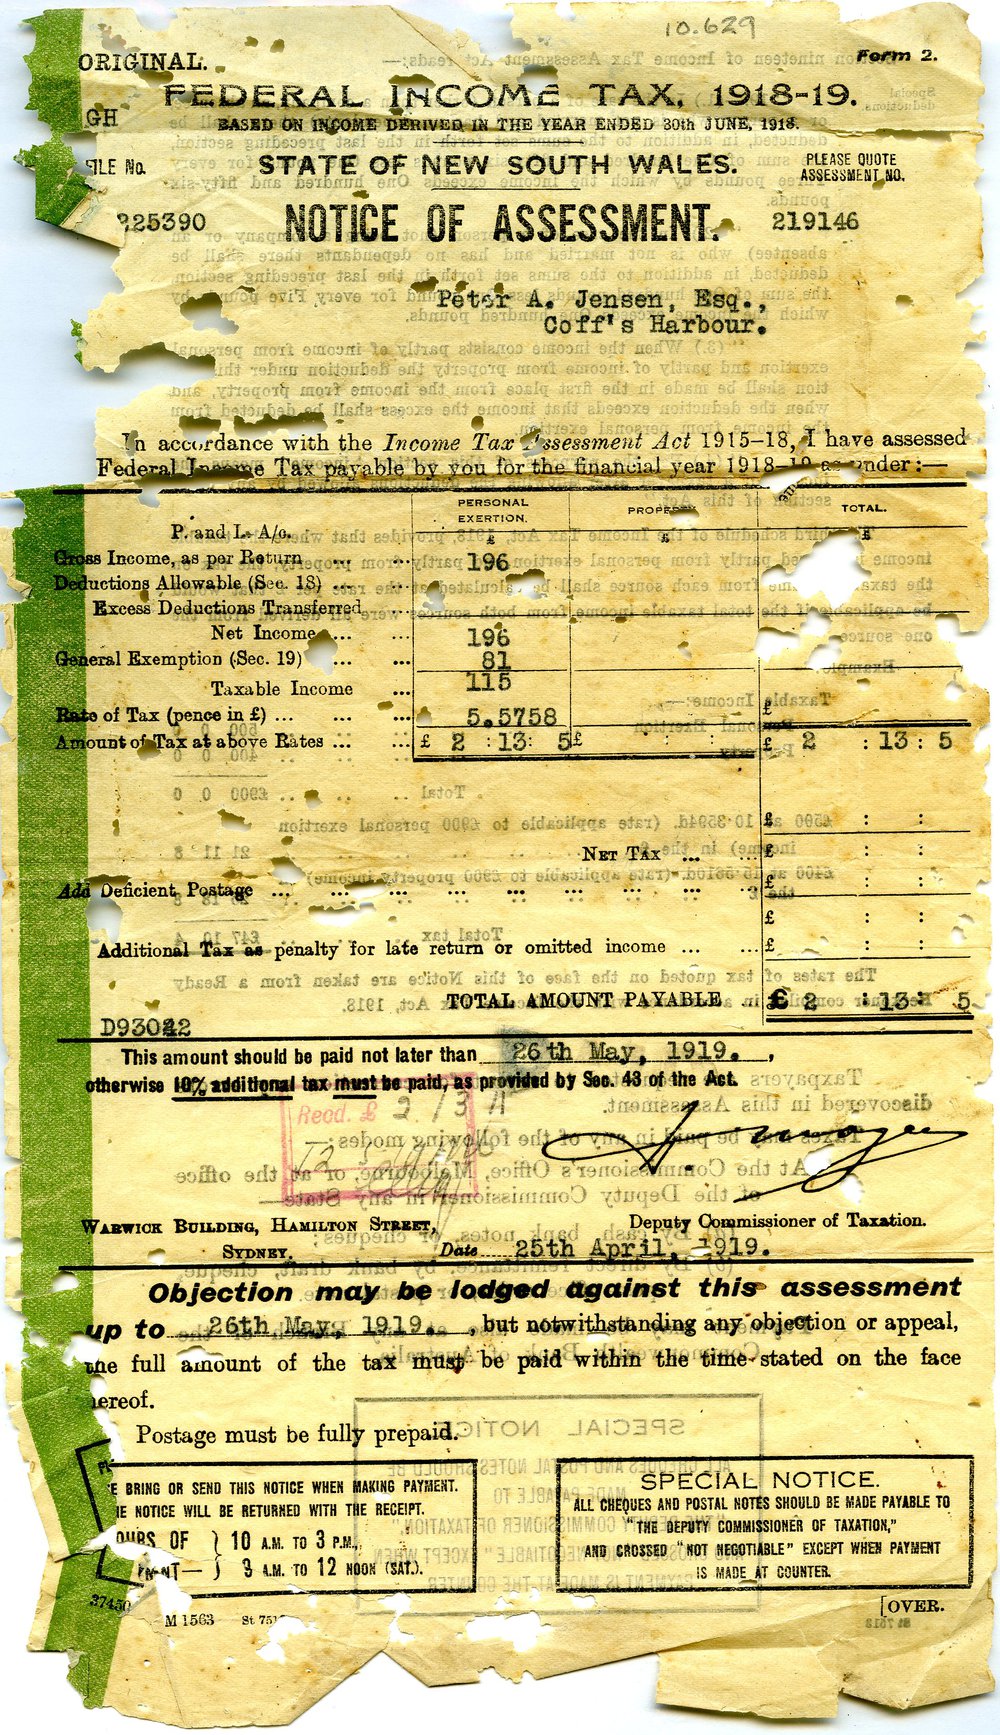 10.629
ORIGINAL.
Form 2.
FEDERAL INCOME TAX, 1918-19.
GH
BASED ON INCOME DERIVED IN THE YEAR ENDED 30th JUNE, 1918.
FILE No.
STATE OF NEW SOUTH WALES.
PLEASE QUOTE
ASSESSMENT NO.
225390
NOTICE OF ASSESSMENT.
219146
Peter A. Jensen, Esq.,
Coff's Harbour.
In accordance with the Income Tax Assessment Act 1915-18, I have assessed
Federal Income Tax payable by you for the financial year 1918-19 as under:—
PERSONAL EXERTION.
PROPERTY
TOTAL.
P. and L. A/c.
£ £ £
Gross Income, as per Return ... 196
Deductions Allowable (Sec. 18) ... ...
Excess Deductions Transferred ...
Net Income ... ... 196
General Exemption (Sec. 19) ... ... 81
Taxable Income ... 115
Rate of Tax (pence in £) ... ... ... 5.5758 £
Amount of Tax at above Rates ... ... £ 2 : 13 : 5 £ : : £ 2 : 13 : 5
£ : :
NET TAX ... ... £ : :
Add Deficient Postage ... ... ... ... ... ... ... ... £ : :
£ : :
Additional Tax as penalty for late return or omitted income ... ... £ : :
TOTAL AMOUNT PAYABLE ... £ 2 : 13 : 5
D93042
This amount should be paid not later than 26th May, 1919. ,
otherwise 10% additional tax must be paid, as provided by Sec. 43 of the Act.
Recd. £ 2/13
WARWICK BUILDING, HAMILTON STREET,
Deputy Commissioner of Taxation.
SYDNEY.
Date 25th April, 1919.
Objection may be lodged against this assessment
up to 26th May, 1919. , but notwithstanding any objection or appeal,
the full amount of the tax must be paid within the time stated on the face
hereof.
Postage must be fully prepaid.
E BRING OR SEND THIS NOTICE WHEN MAKING PAYMENT.
HE NOTICE WILL BE RETURNED WITH THE RECEIPT.
OURS OF } 10 A.M. TO 3 P.M.,
MENT— } 3 A.M. TO 12 NOON (SAT.).
SPECIAL NOTICE.
ALL CHEQUES AND POSTAL NOTES SHOULD BE MADE PAYABLE TO
"THE DEPUTY COMMISSIONER OF TAXATION,"
AND CROSSED "NOT NEGOTIABLE" EXCEPT WHEN PAYMENT
IS MADE AT COUNTER.
37450
M 1563
St 751
[OVER.